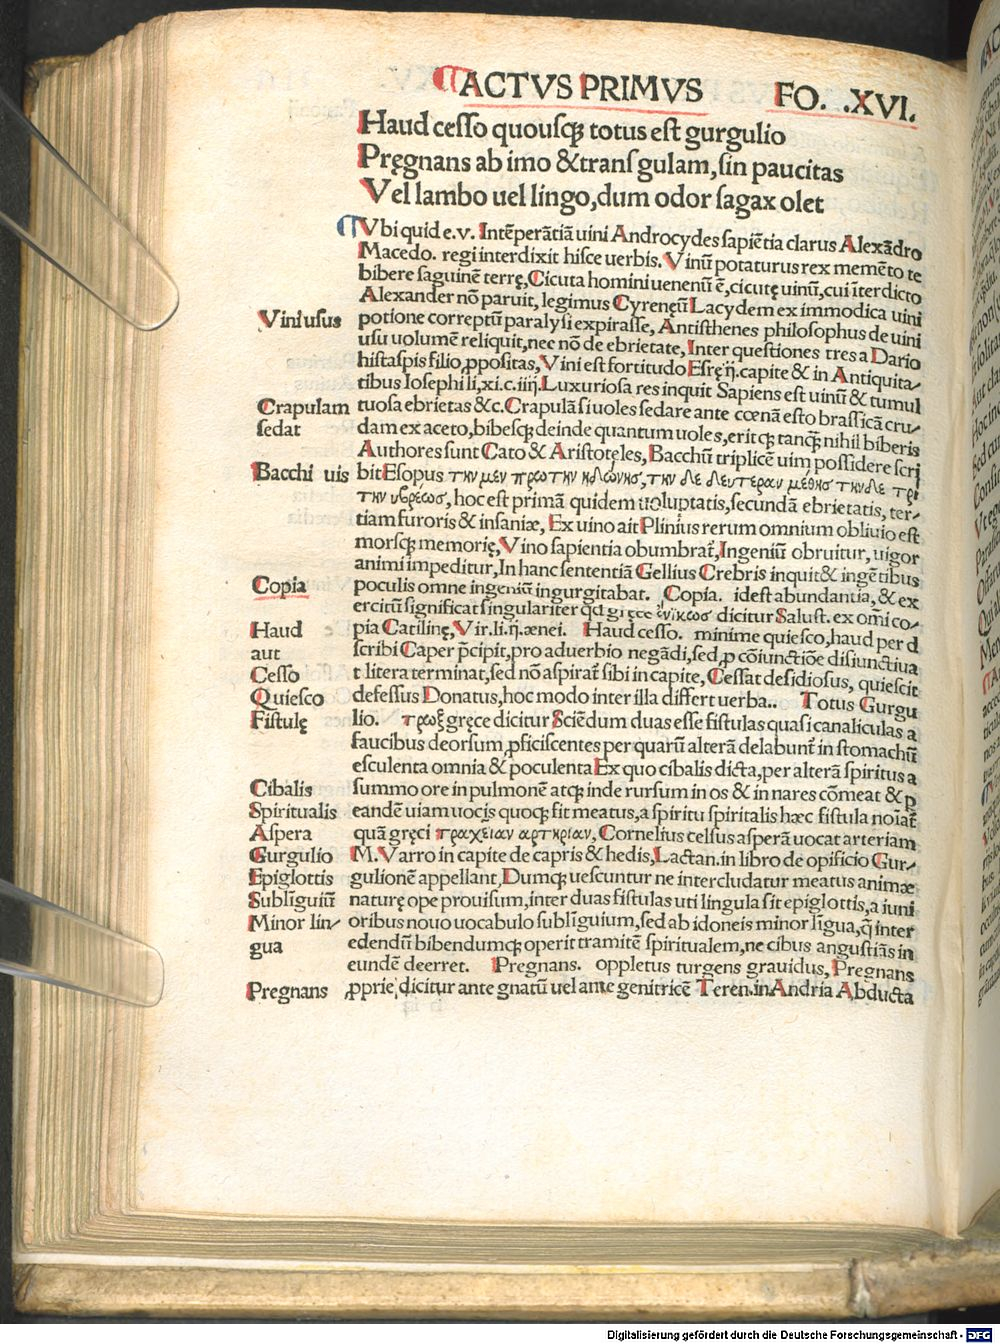 ACTVS PRIMVS FO. .XVI.
Haud cesso quousqꝫ totus est gurgulio
Pręgnans ab imo & trans gulam, sin paucitas
Vel lambo uel lingo, dum odor sagax olet
Vbi quid e.v. Intẽperãtiã uini Androcydes sapiẽtia clarus Alexãdro
Macedo. regi interdixit hisce uerbis. Vinũ potaturus rex memẽto te
bibere sãguinẽ terrę, Cicuta homini uenenũ ẽ, cicutę uinũ, cui ĩterdicto
Alexander nõ paruit, legimus Cyrenęũ Lacydem ex immodica uini
Vini usus
potione correptũ paralysi expirasse, Antisthenes philosophus de uini
usu volumẽ reliquit, nec nõ de ebrietate, Inter questiones tres a Dario
histaspis filio ꝓpositas, Vini est fortitudo Esrę.ij. capite & in Antiquita-
tibus Iosephi li, xi.c.iiij. Luxuriosa res inquit Sapiens est uinũ & tumul
Crapulam
sedat
tuosa ebrietas &c. Crapulã si uoles sedare ante cœnã esto brassicã cru-
dam ex aceto, bibesqꝫ deinde quantum uoles, erit qꝫ tanq̃ nihil biberis
Authores sunt Cato & Aristoteles, Bacchũ triplicẽ uim possidere scri
Bacchi uis
bit Esopus την μεν πρωτην ηδωνησ, την δε δευτεραν μέθησ την δε τρι
την υβρεωσ, hoc est primã quidem uoluptatis, secundã ebrietatis, ter-
tiam furoris & insaniæ, Ex uino ait Plinius rerum omnium obliuio est
morsqꝫ memorię, Vino sapientia obumbrat̃, Ingeniũ obruitur, uigor
animi impeditur, In hanc sententiã Gellius Crebris inquit & ingẽtibus
Copia
poculis omne ingeniũ ingurgitabat. Copia. idest abundantia, & ex
ercitũ significat singulariter qd gręce ἑνικωσ dicitur Salust. ex om̃i co-
Haud
aut
pia Catilinę, Vir. li.ij. ænei. Haud cesso. minime quiesco, haud per d
scribi Caper p̃cipit, pro aduerbio negãdi, sed ꝓ cõiunctiõe disiunctiua
Cesso
t litera terminat, sed nõ aspirat̃ sibi in capite, Cessat desidiosus, quiescit
Quiesco
defessus Donatus, hoc modo inter illa differt uerba.. Totus Gurgu
Fistulę
lio. τρωξ gręce dicitur Sciẽdum duas esse fistulas quasi canaliculas a
faucibus deorsum ꝓficiscentes per quarũ alterã delabunt̃ in stomachũ
esculenta omnia & poculenta Ex quo cibalis dicta, per alterã spiritus a
Cibalis
summo ore in pulmonẽ atqꝫ inde rursum in os & in nares cõmeat & ꝑ
Spiritualis
eandẽ uiam uocis quoqꝫ fit meatus, a spiritu spiritalis hæc fistula noiat̃
Aspera
quã gręci τραχειαν αρτηριαν, Cornelius celsus asperã uocat arteriam
Gurgulio
M. Varro in capite de capris & hedis, Lactan. in libro de opificio Gur-
Epiglottis
gulionẽ appellant, Dumqꝫ uescuntur ne intercludatur meatus animæ
Subliguiũ
naturę ope prouisum, inter duas fistulas uti lingula sit epiglottis, a iuni
Minor lin-
gua
oribus nouo uocabulo subliguium, sed ab idoneis minor ligua, q̃ inter
edendũ bibendumqꝫ operit tramitẽ spiritualem, ne cibus angustiãs in
eundẽ deerret. Pregnans. oppletus turgens grauidus, Pregnans
Pregnans
ꝓprie dicitur ante gnatũ uel ante genitricẽ Teren. in Andria Abducta
Digitalisierung gefördert durch die Deutsche Forschungsgemeinschaft - DFG